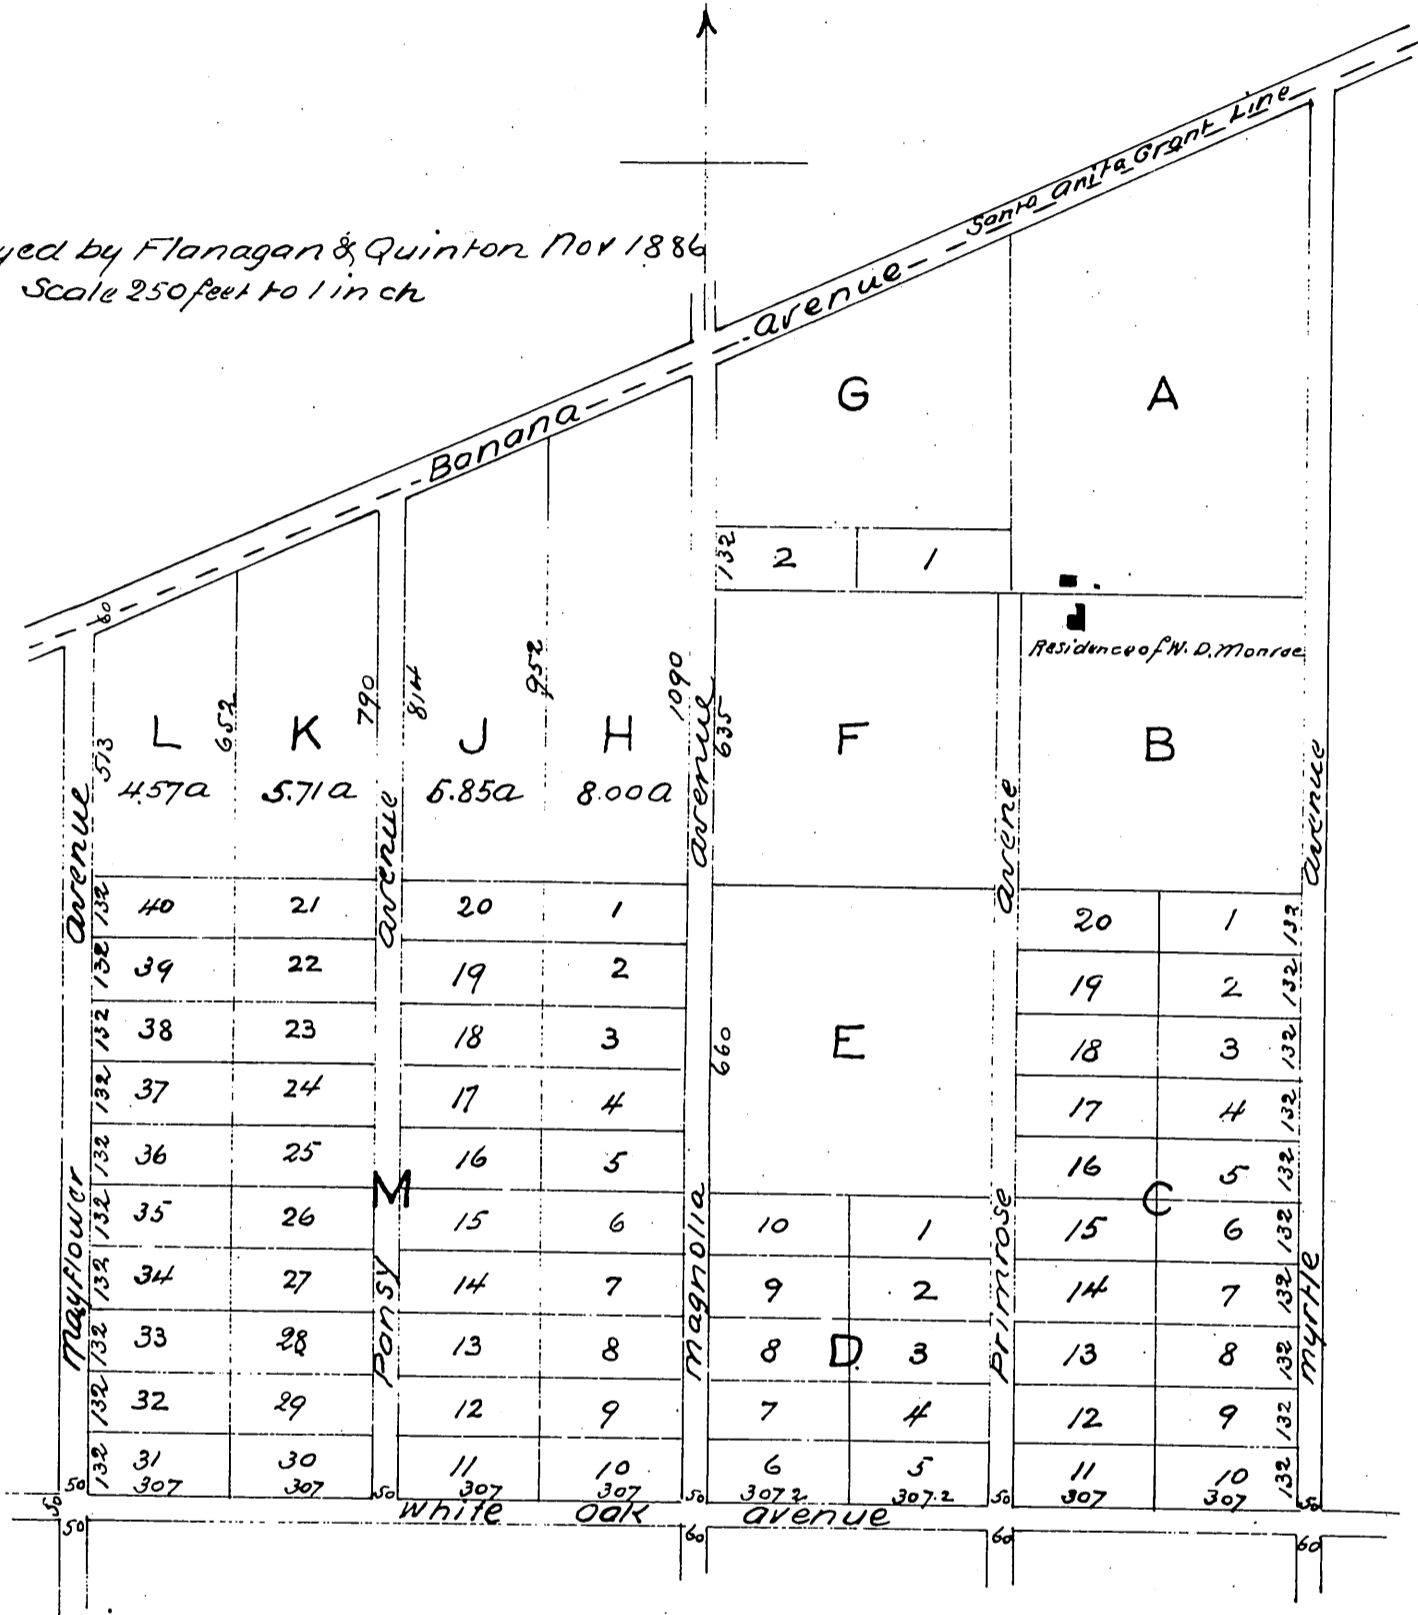 yed by Flanagan & Quinton Nov 1886
Scale 250 feet to 1 inch
Banana avenue
Santa Anita Grant Line
G
A
132
2
1
Residence of W. D. Monroe
60
L
K
J
H
F
B
513
652
790
814
952
1090
635
4.57a
5.71a
8.00a
Mayflower avenue
Pansy avenue
Magnolia avenue
Primrose avene
Myrtle avenue
132 40 21 20 1
132 39 22 19 2
132 38 23 18 3
132 37 24 17 4
132 36 25 16 5
132 35 26 15 6
132 34 27 14 7
132 33 28 13 8
132 32 29 12 9
132 31 30 11 10
307 307 307 307
M
660
E
10 1
9 2
8 D. 3
7 4
6 5
307.2 307.2
20 1 132
19 2 132
18 3 132
17 4 132
16 5 132
C
15 6 132
14 7 132
13 8 132
12 9 132
11 10 132
307 307
50 50 50 50 50
50
50
White Oak avenue
60 60 60